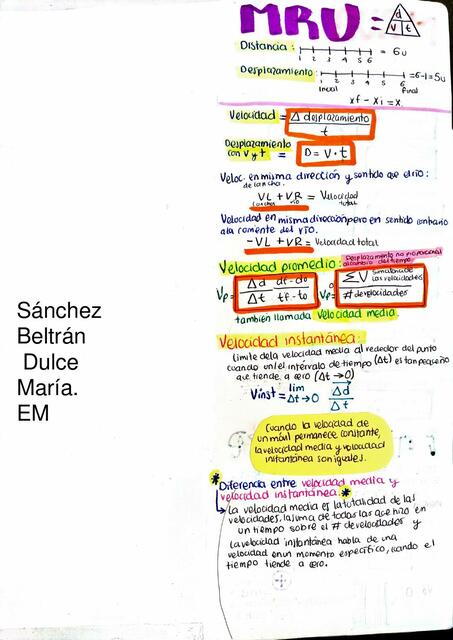 MRU = d
V t
Distancia: = 6u
1 2 3 4 5 6
Desplazamiento: = 6-1 = 5u
1 2 3 4 5 6
Inicial final
xf - xi = x
Velocidad = Δ desplazamiento
t
Desplazamiento
con v y t = D = V · t
Veloc. en misma dirección y sentido que el río:
de lancha.
VL + VR = Velocidad
lancha río total
Velocidad en misma dirección pero en sentido contrario
a la corriente del río.
- VL + VR = Velocidad total
Desplazamiento no proporcional
al cambio del tiempo.
Velocidad promedio:
Vp = Δd df - do o Vp = ΣV sumatoria de
las velocidades
Δt tf - to # de velocidades
también llamada velocidad media.
Velocidad instantánea:
límite de la velocidad media al rededor del punto
cuando un/el intérvalo de tiempo (Δt) es tan pequeño
que tiende a cero (Δt → 0)
Vinst = lim Δd
Δt → 0 Δt
Cuando la velocidad de
un móvil permanece constante,
la velocidad media y velocidad
instantánea son iguales.
* Diferencia entre velocidad media y
velocidad instantánea. *
La velocidad media es la totalidad de las
velocidades, la suma de todas las que hizo en
un tiempo sobre el # de velocidades y
la velocidad instantánea habla de una
velocidad en un momento específico, cuando el
tiempo tiende a cero.
Sánchez
Beltrán
Dulce
María.
EM